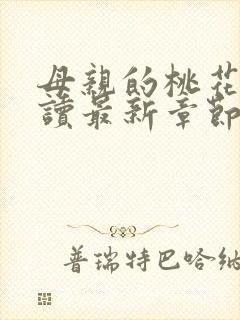 母親的桃花
讀最新章節
普瑞特巴哈納